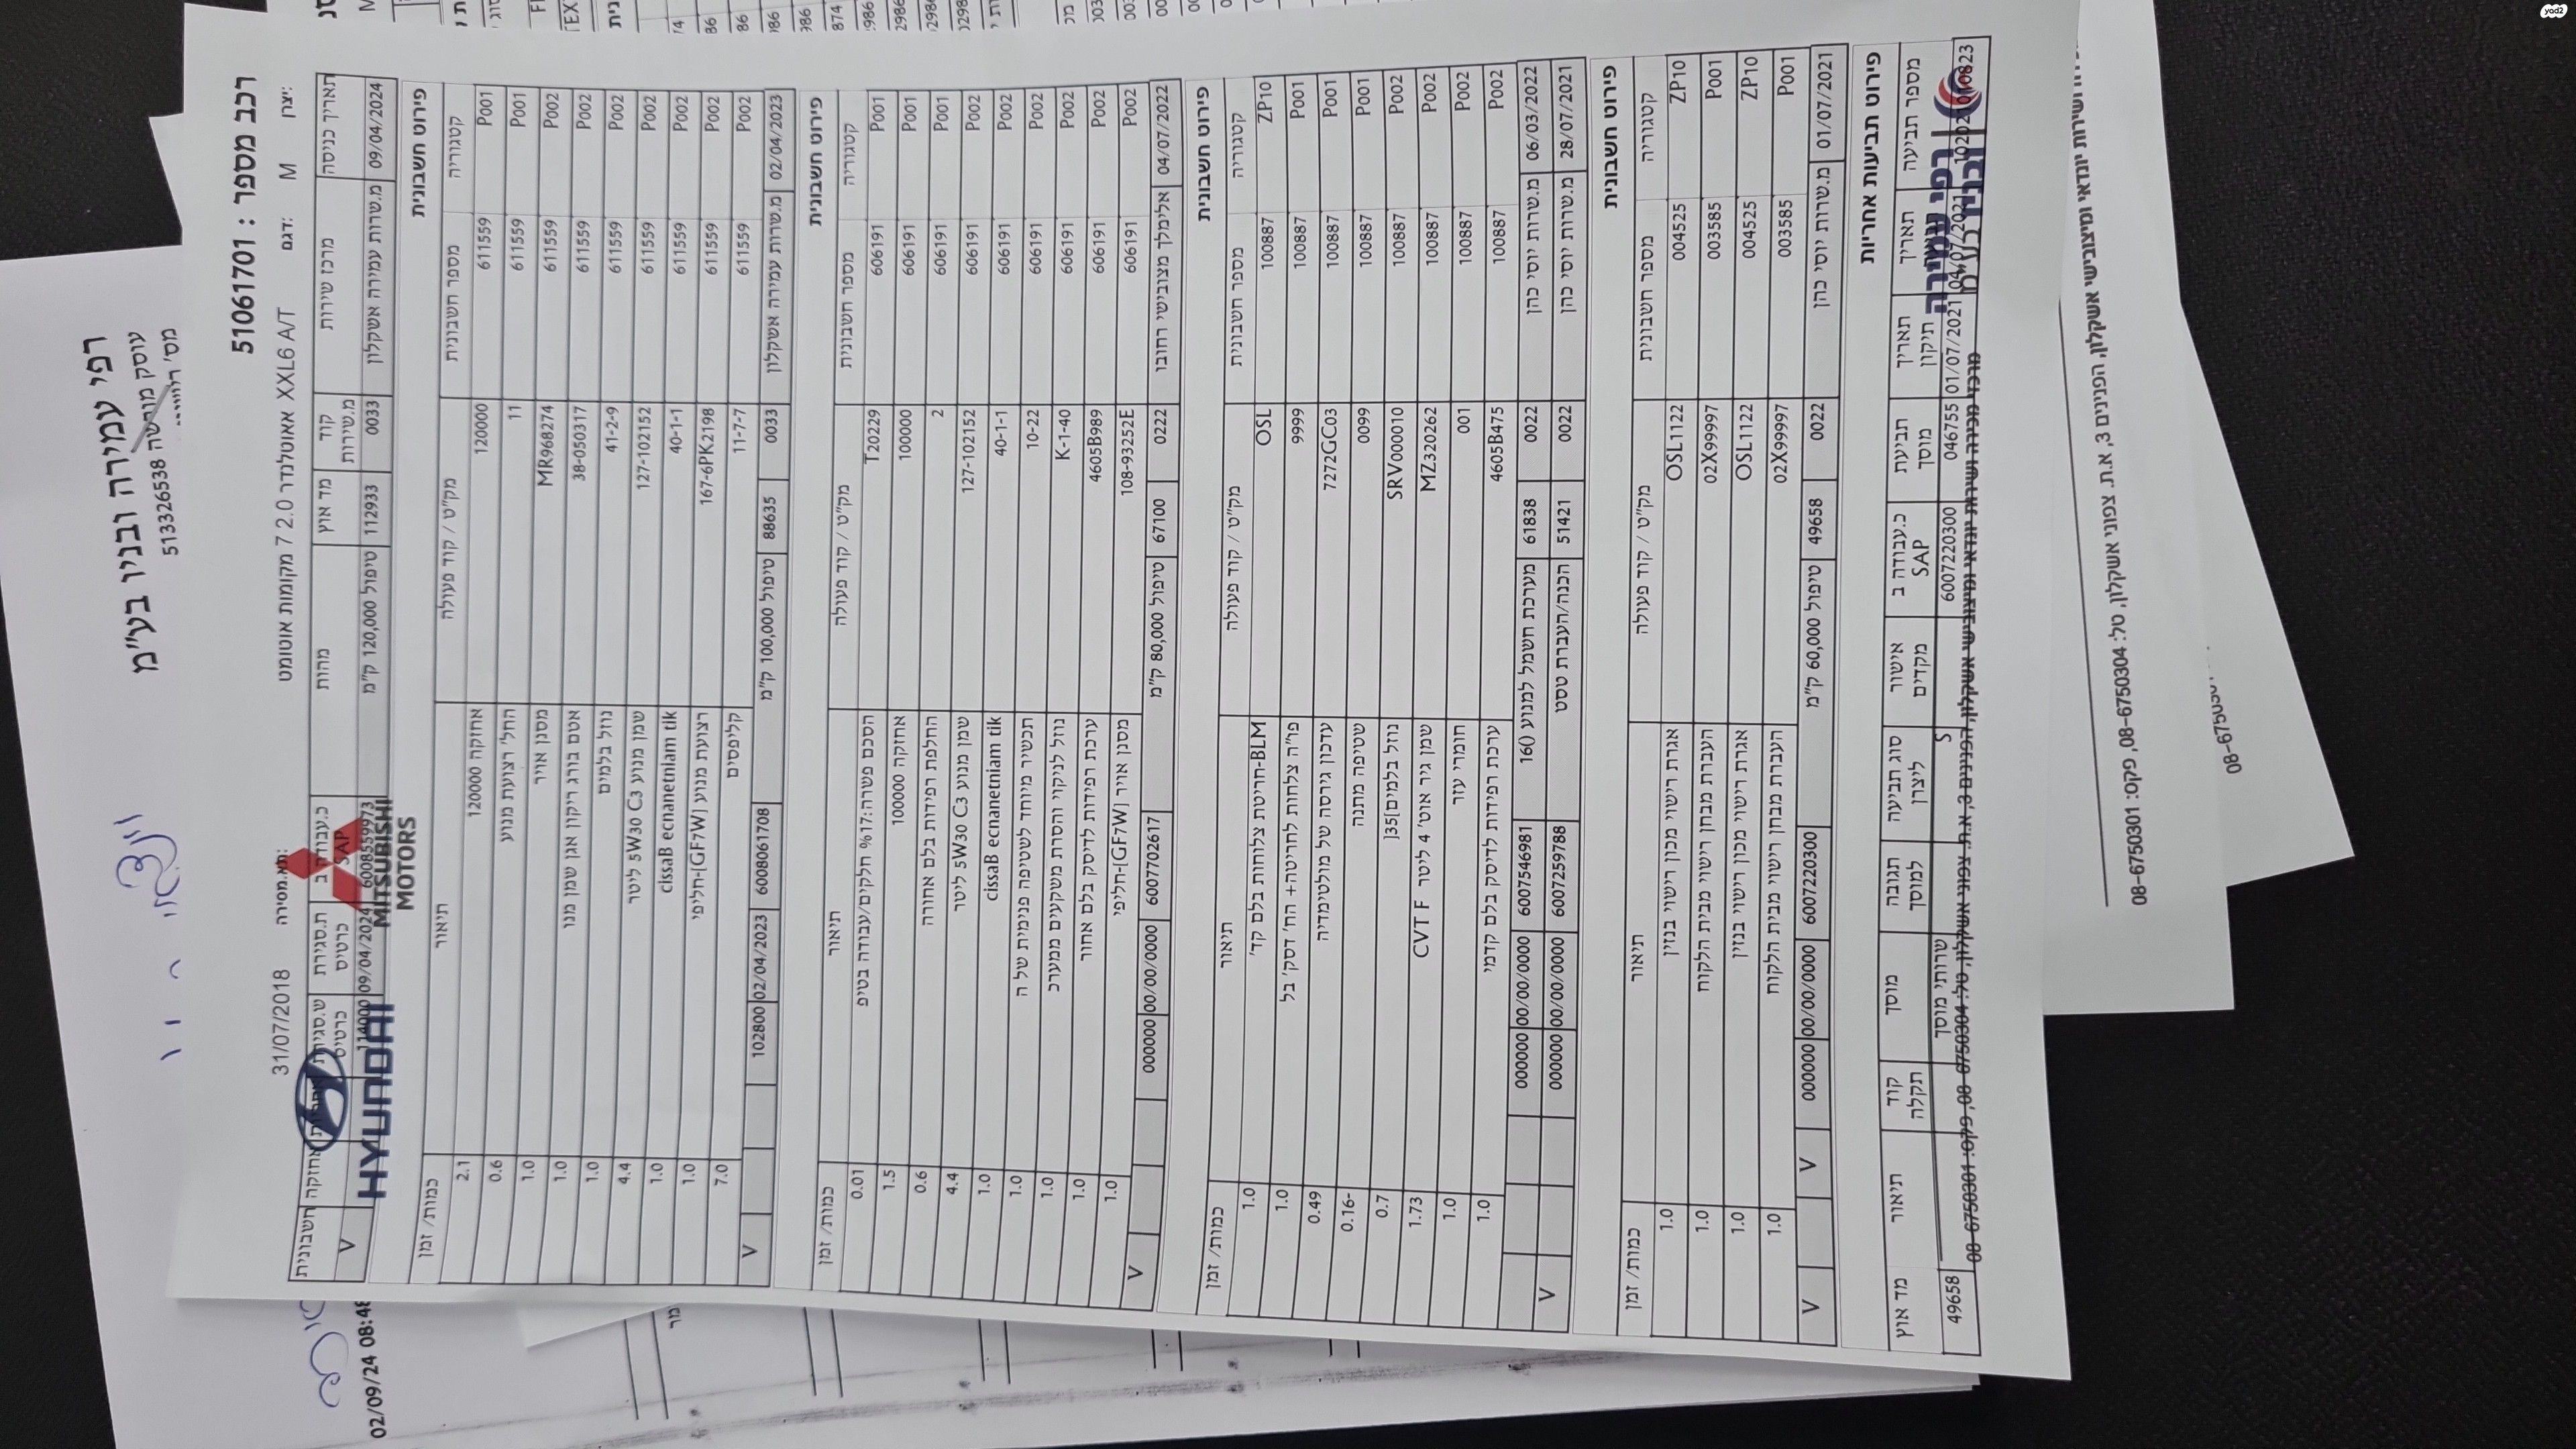 רפי עמירה ובניו בע"מ
עוסק מורשה 513326538
רכב מספר : 51061701
יצרן: M דגם: אאוטלנדר 2.0 7 מקומות אוטומט XXL6 A/T ת.מסירה: 31/07/2018
תאריך כניסה מרכז שירות קוד מ.שירות מד אוץ מהות כ.עבודה ב SAP ת.סגירת כרטיס ש.סגירת כרטיס אחריות אחזקה חשבונית
09/04/2024 מ.שרות עמירה אשקלון 0033 112933 טיפול 120,000 ק"מ 6008559973 09/04/2024 114000 V
MITSUBISHI MOTORS
HYUNDAI
פירוט חשבונית
קטגוריה מספר חשבונית מק"ט / קוד פעולה תיאור כמות/ זמן
P001 611559 120000 אחזקה 120000 2.1
P001 611559 11 החל' רצועת מנוע 0.6
P002 611559 MR968274 מסנן אויר 1.0
P002 611559 38-050317 אטם בורג ריקון אגן שמן מנו 1.0
P002 611559 41-2-9 נוזל בלמים 1.0
P002 611559 127-102152 שמן מנוע 5W30 C3 ליטר 4.4
P002 611559 40-1-1 cissaB ecnanetniam tik 1.0
P002 611559 167-6PK2198 רצועת מנוע [GF7W]-חליפי 1.0
P002 611559 11-7-7 קליפסים 7.0
02/04/2023 מ.שרות עמירה אשקלון 0033 88635 טיפול 100,000 ק"מ 6008061708 02/04/2023 102800 V
פירוט חשבונית
קטגוריה מספר חשבונית מק"ט / קוד פעולה תיאור כמות/ זמן
P001 606191 T20229 הסכם פשרה:17% חלקים/עבודה בטיפ 0.01
P001 606191 100000 אחזקה 100000 1.5
P001 606191 2 החלפת רפידות בלם אחורה 0.6
P002 606191 127-102152 שמן מנוע 5W30 C3 ליטר 4.4
P002 606191 40-1-1 cissaB ecnanetniam tik 1.0
P002 606191 10-22 תכשיר מיוחד לשטיפה פנימית של ה 1.0
P002 606191 K-1-40 נוזל לניקוי והסרת משקעים ממערכ 1.0
P002 606191 4605B989 ערכת רפידות לדיסק בלם אחור 1.0
P002 606191 108-93252E מסנן אויר [GF7W]-חליפי 1.0
04/07/2022 אלימלך מצובישי רחובו 0222 67100 טיפול 80,000 ק"מ 6007702617 00/00/0000 000000 V
פירוט חשבונית
קטגוריה מספר חשבונית מק"ט / קוד פעולה תיאור כמות/ זמן
ZP10 100887 OSL BLM-חריטת צלוחות בלם קד' 1.0
P001 100887 9999 פו"ה צלחות לחריטה+ הח' דסק' בל 1.0
P001 100887 7272GC03 עדכון גירסה של מולטימדיה 0.49
P001 100887 0099 שטיפה מתנה 0.16-
P002 100887 SRV000010 נוזל בלמים[35] 0.7
P002 100887 MZ320262 שמן גיר אוט' 4 ליטר CVT F 1.73
P002 100887 001 חומרי עזר 1.0
P002 100887 4605B475 ערכת רפידות לדיסק בלם קדמי 1.0
06/03/2022 מ.שרות יוסי כהן 0022 61838 מערכת חשמל למנוע (16 6007546981 00/00/0000 000000
28/07/2021 מ.שרות יוסי כהן 0022 51421 הכנה/העברת טסט 6007259788 00/00/0000 000000 V
פירוט חשבונית
קטגוריה מספר חשבונית מק"ט / קוד פעולה תיאור כמות/ זמן
ZP10 004525 OSL1122 אגרת רישוי מכון רישוי בנזין 1.0
P001 003585 02X99997 העברת מבחן רישוי מבית הלקוח 1.0
ZP10 004525 OSL1122 אגרת רישוי מכון רישוי בנזין 1.0
P001 003585 02X99997 העברת מבחן רישוי מבית הלקוח 1.0
01/07/2021 מ.שרות יוסי כהן 0022 49658 טיפול 60,000 ק"מ 6007220300 00/00/0000 000000 V V
פירוט תביעות אחריות
מספר תביעה תאריך תאריך תיקון תביעת מוסך כ.עבודה ב SAP אישור מקדים סוג תביעה ליצרן תגובה למוסך מוסך קוד תקלה תיאור מד אוץ
04/07/2021 01/07/2021 046755 6007220300 S שרותי מוסך 49658
רפי עמירה ובניו בע"מ
מרכז מכירה ושירות יונדאי ומיצובישי אשקלון, הפנינים 3, א.ת. צפוני אשקלון, טל: 08-6750304, פקס: 08-6750301
ושירות יונדאי ומיצובישי אשקלון, הפנינים 3, א.ת. צפוני אשקלון, טל: 08-6750304, פקס: 08-6750301
02/09/24
yad2